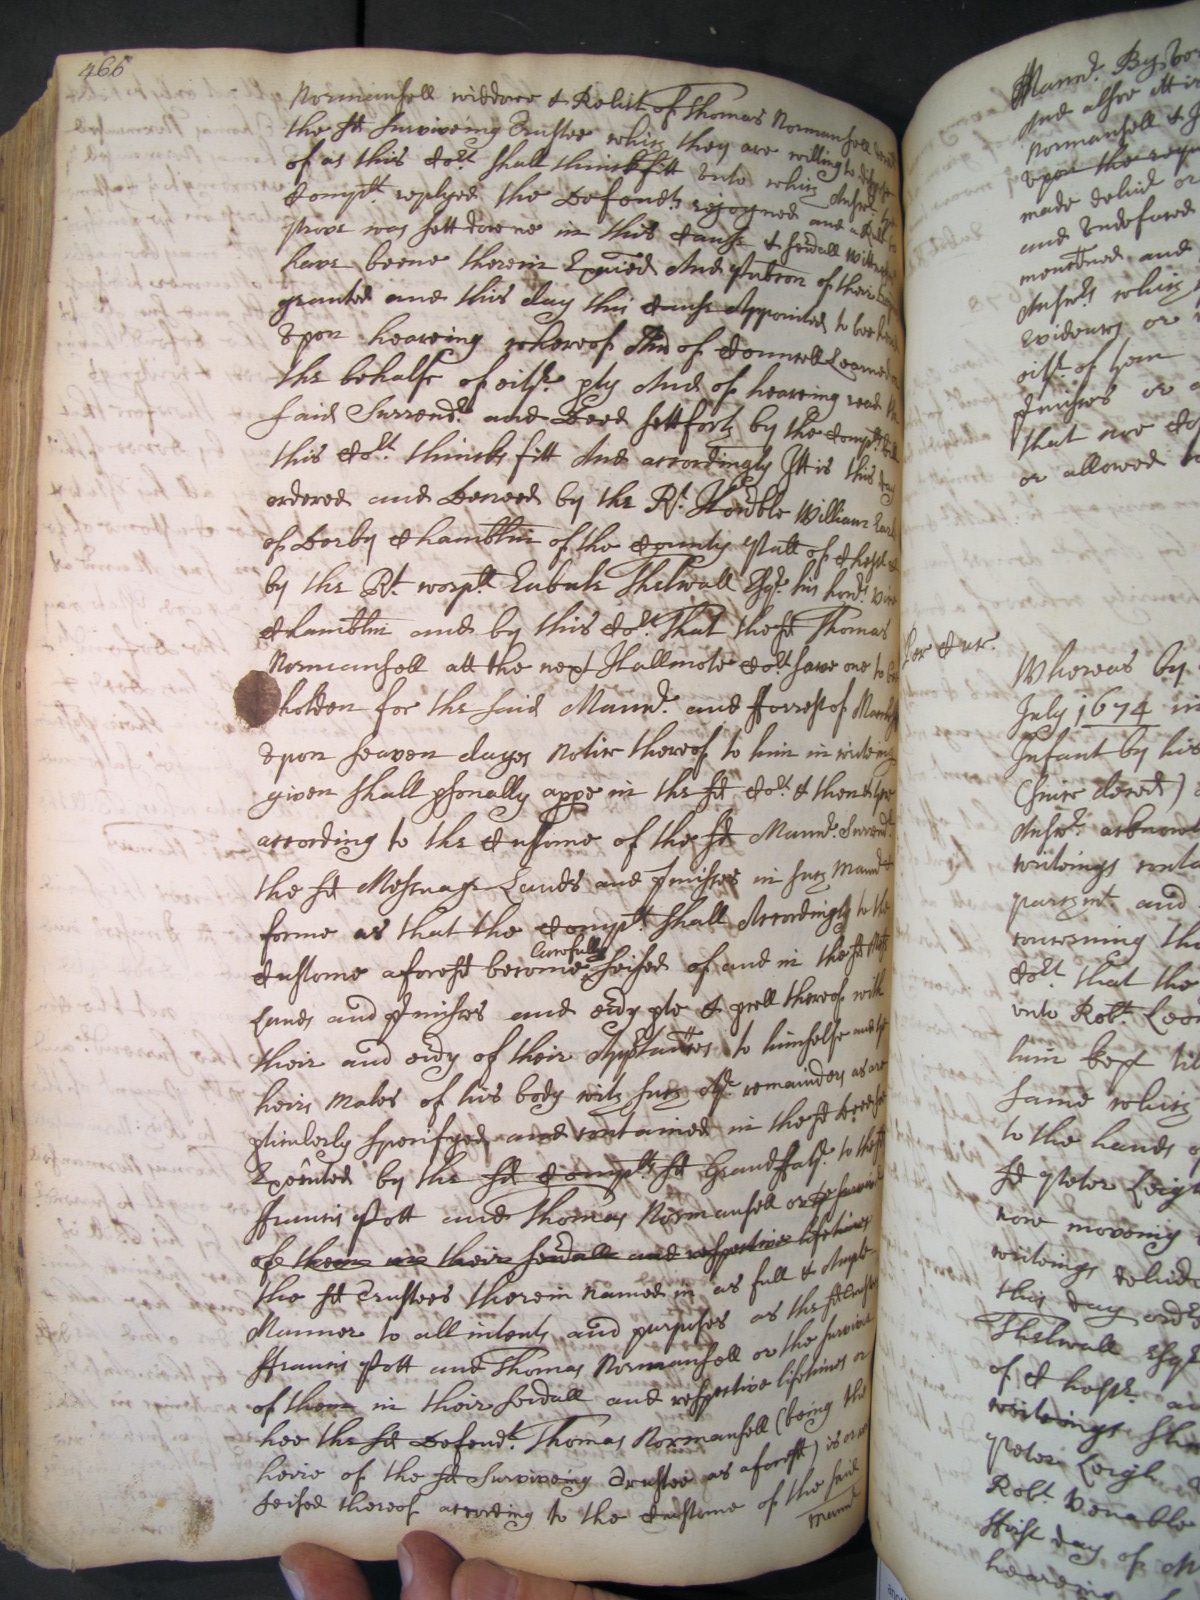 466
Normansell widdowe & Relict of Thomas Normansell
the sd surviveing Trustee which they are willing to
of as this Cort shall thinck fitt Unto which Answr
Compt replyed the Defendts rejoyned and a
prove was sett downe in this Cause & sevall Wittnes
have beene therein Exied And publicon of their
granted and this day this Cause Appointed to bee heard
Upon heareing whereof And of Councell Learned on
the behalfe of eithr pty And of heareing read the
said Surrendr and Deed sett forth by the Compts bill
this Cort thincks fitt And accordingly Itt is this day
ordered and Decreed by the Rt Honoble William Earle
of Derby Chamblin of the County Pallt of Chestr &
by the Rt worpll Eubule Thelwall Esqr his honrs vice
Chamblin and by this Cort That the sd Thomas
Normansell att the next Hallmote Cort have one to be
holden for the said Mannr and Forrest of
Upon seaven dayes notice thereof to him in writeing
given shall psonally appe in the sd Cort & then & there
according to the Custome of the sd Mannr Surrendr
the sd Messuage Lands and pmisses in such Mannr &
forme as that the Compt shall Accordingly to the
Custome aforesd become Lawfully seised of and in the sd Messe
Lands and pmisses and evy pte & pcell thereof with
their and evy of their Apptances to himselfe and the
heirs Males of his body with such othr remainders as are
pticulerly specifyed and contained in the sd deed soe
Executed by the sd Compts sd Grandfathr to the sd
Francis Pott and Thomas Normansell or the survivor
of them in their sevall and respective lifetimes
the sd Trustees therein named in as full & Ample
Manner to all intents and purposes as the sd Trustees
Francis Pott and Thomas Normansell or the survivor
of them in their sevall and respective lifetimes or
hee the sd Defendt Thomas Normansell (being the
heire of the sd Surviveing Trustee as aforesd) is or was
seised thereof according to the Custome of the said
Mannr
Mannr By
And alsoe att
Normansell &
Upon the
made delivd or
and Undefaced
mencõned and
Answrs which
Evidences or
eithr of them
pmisses or
that noe
or allowed
Whereas by
July 1674 in
Infant by his
(since deced)
Answr acknow
writeings
parchmt and
concerning the
Cort that the
unto Robt
him kept
same which
to the hands of
sd Peter Leigh
now moveing
writeings
this day ordr
Thelwall Esqr
of Chestr
writeings
Peter Leigh
Robt Venable
First day of
heareing